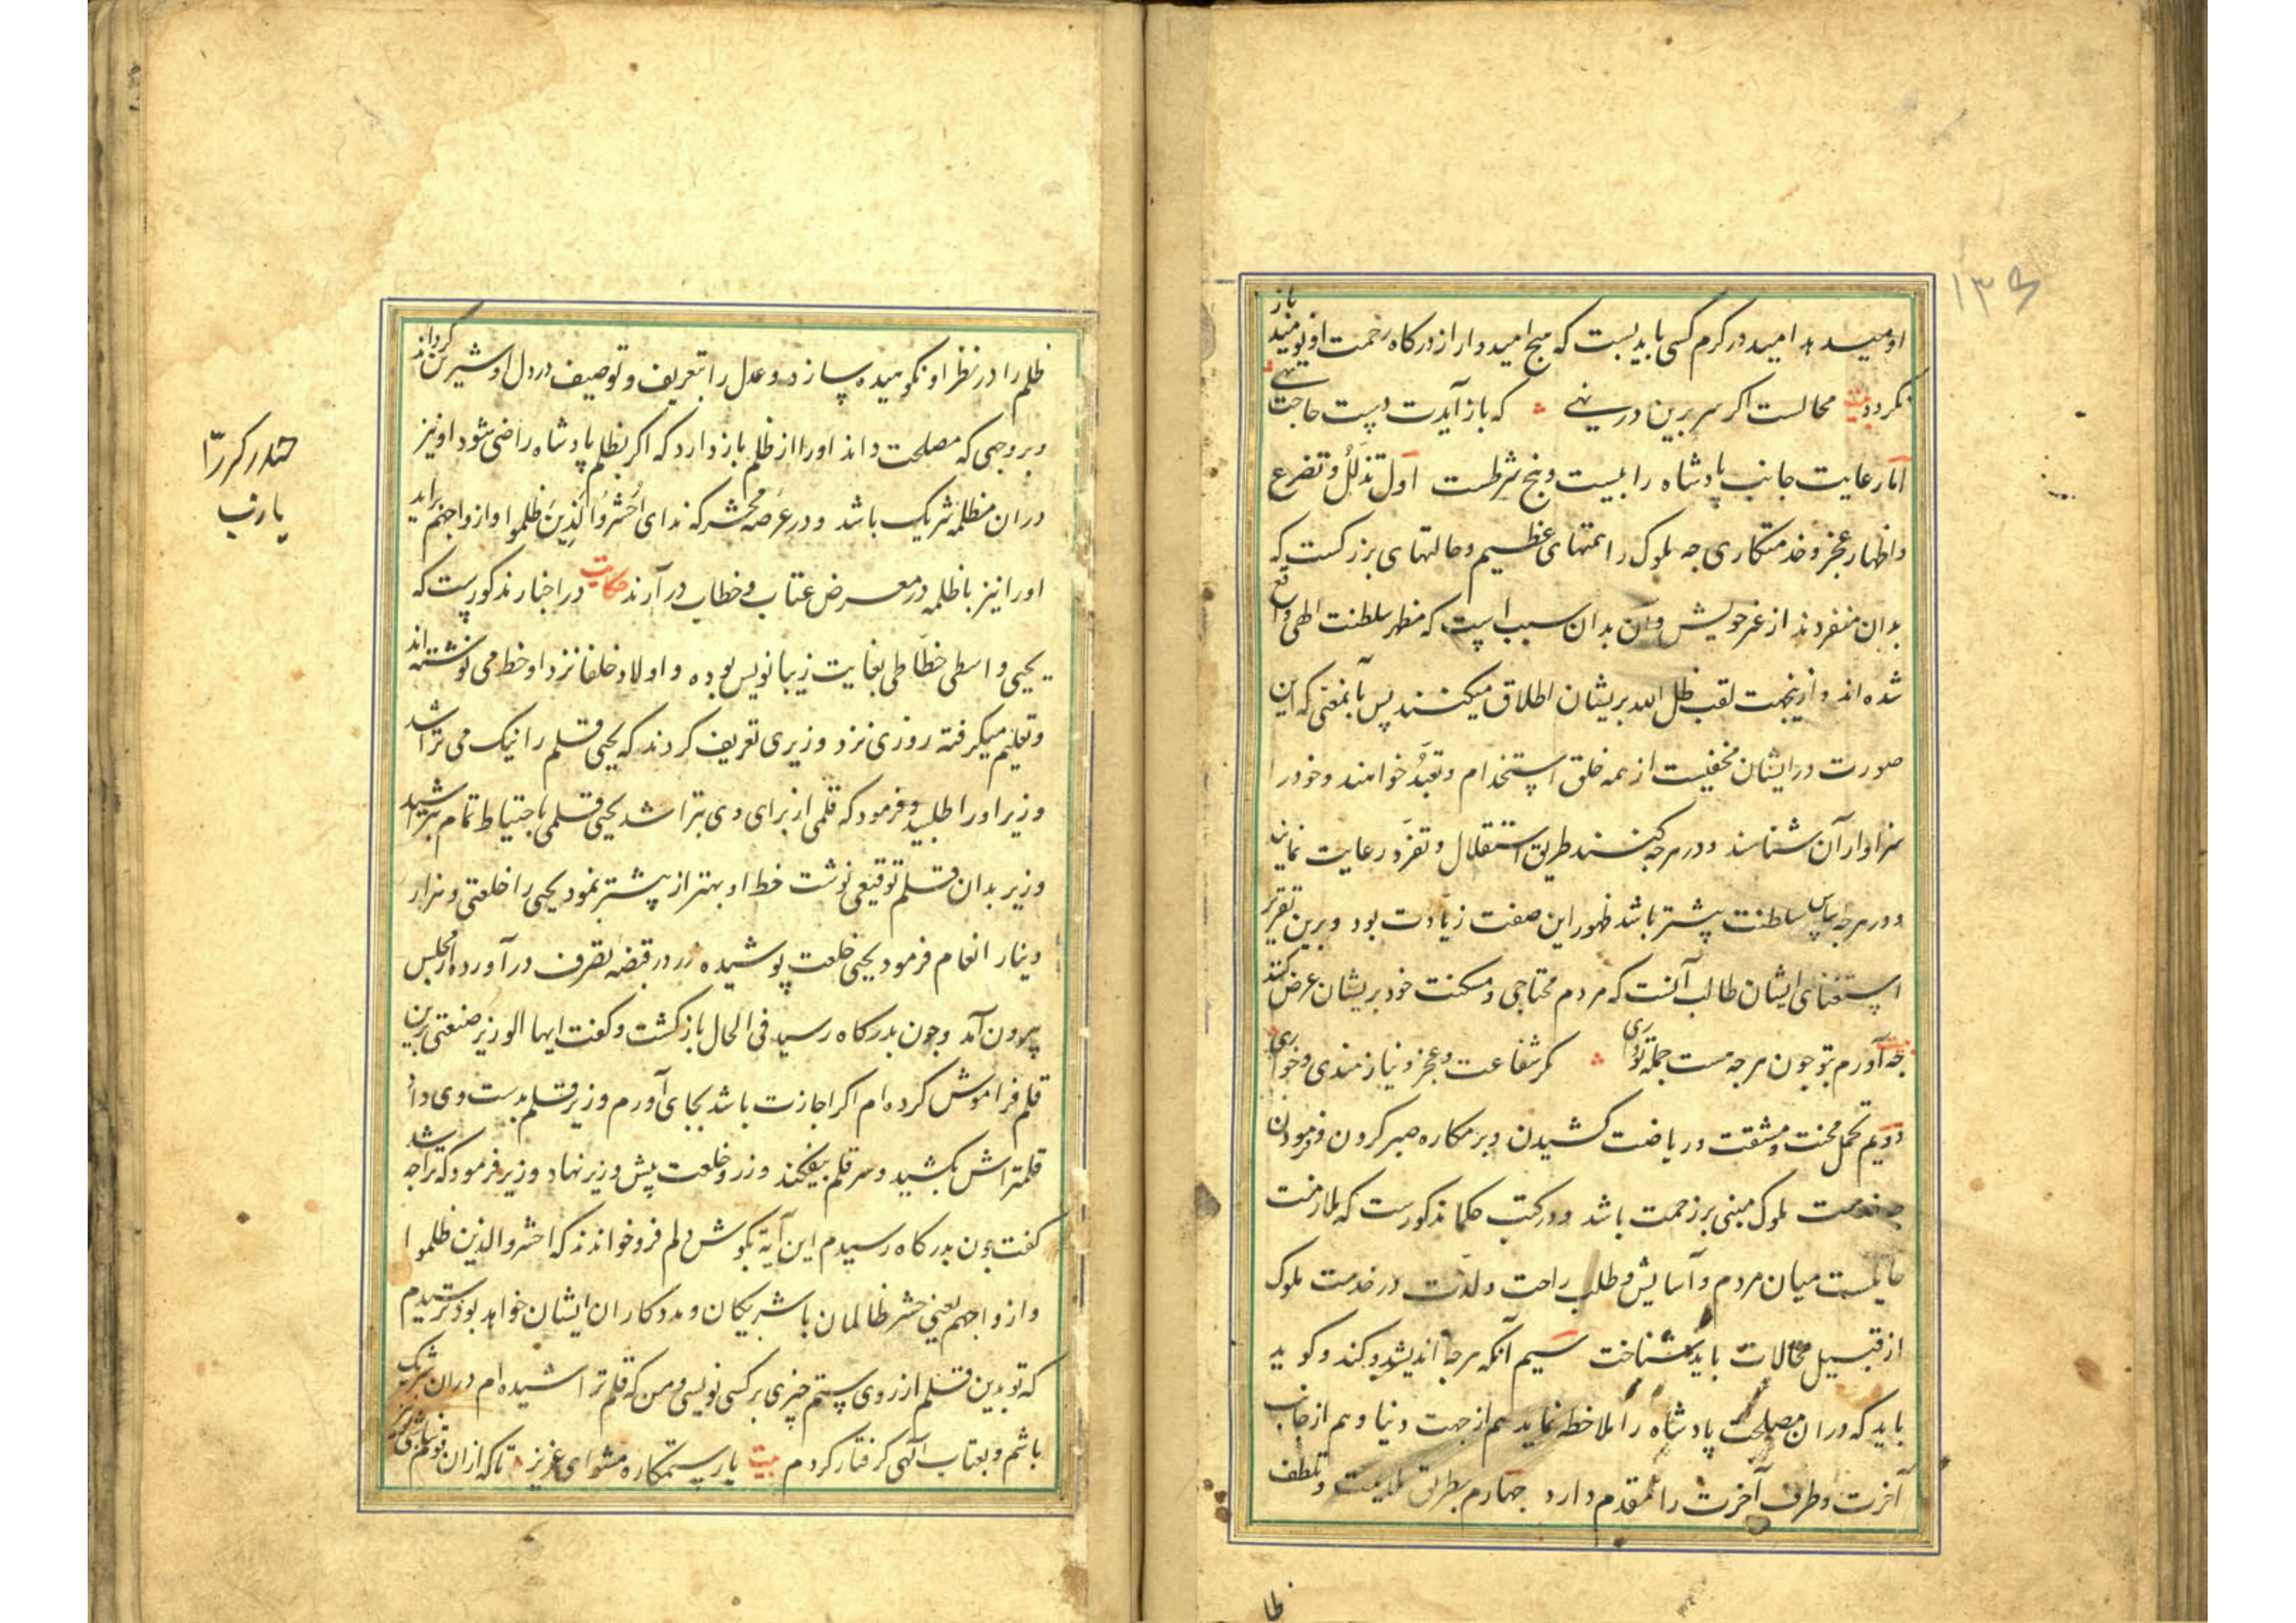 ۱۳۶
او میسد مد امید در کرم کسی باید بست که هیچ امیدوار از درکاه رحمت او نومید باز
نکردد بیت محالست اکر سر برین در نهی که باز آیدت دست حاجت تهی
اما رعایت جانب پادشاه را بیست و پنج شرطست اول تذلل و تضرع
و اظهار عجز و خدمتکاری چه ملوک را همتهای عظیم و حالتهای بزرکست که
بدان منفردند از غیر خویش و آن بدان سبب است که مظهر سلطنت الهی واقع
شده اند و ازینجهت لقب ظل الله بریشان اطلاق میکنند پس بآنمعنی که این
صورت در ایشان مخفیست از همه خلق استخدام و تعبد خواهند و خود را
سزاوار آن شناسند و در هرچه کنند طریق استقلال و تفرد رعایت نمایند
و در هرچه سلطنت پیشتر باشد ظهور این صفت زیادت بود و برین تقریر
استغنای ایشان طالب آنست که مردم محتاجی و مسکنت خود بریشان عرض کنند
چه آورم بتو چون هرچه هست جمله تو داری مکر شفاعت و عجز و نیازمندی و خواری
دویم تحمل محنت و مشقت و ریاضت کشیدن و بر مکاره صبر کردن و فرمودن
چه خدمت ملوک مبنی بر زحمت باشد و در کتب حکما مذکورست که ملازمت
حالیست میان مردم و آسایش و طلب راحت و لذت در خدمت ملوک
از قبیل محالات باید شناخت سیم آنکه هرچه اندیشد و کند و کوید
باید که در ان مصلحت پادشاه را ملاحظه نماید هم از جهت دنیا و هم از جانب
آخرت و طرف آخرت را مقدم دارد چهارم بطریق ملایمت و تلطف
ظلم را در نظر او نکوهیده سازد و عدل را بتعریف و توصیف در دل او شیرین کرداند
و بر وجهی که مصلحت داند او را از ظلم باز دارد که اکر بظلم پادشاه راضی شود او نیز
در ان مظلمه شریک باشد و در عرصه محشر که ندای احشروا الذین ظلموا و ازواجهم براید
او را نیز با ظلمه در معرض عتاب و خطاب در آرند حکایت در اخبار مذکورست که
یحیی واسطی خطاطی بغایت زیبا نویس بوده و اولاد خلفا نزد او خط می نوشته اند
و تعلیم میکرفته روزی نزد وزیری تعریف کردند که یحیی قلم را نیک می تراشد
وزیر او را طلبید و فرمود که قلمی از برای وی بتراشد یحیی قلمی باحتیاط تمام بتراشید
وزیر بدان قلم توقیعی نوشت خط او بهتر از پیشتر نمود یحیی را خلعتی و هزار
دینار انعام فرمود یحیی خلعت پوشیده زر در قبضه تصرف در آورده از مجلس
بیرون آمد و چون بدرکاه رسید فی الحال باز کشت و کفت ایها الوزیر صنعتی برین
قلم فراموش کرده ام اکر اجازت باشد بجای آورم وزیر قلم بدست وی داد
قلمتراش بکشید و سر قلم بیفکند و زر و خلعت پیش وزیر نهاد وزیر فرمود که ترا چه شد
کفت چون بدرکاه رسیدم این آیه بکوش دلم فرو خواندند که احشروا الذین ظلموا
و ازواجهم یعنی حشر ظالمان با شریکان و مددکاران ایشان خواهد بود ترسیدم
که تو بدین قلم از روی ستم چیزی بر کسی نویسی و من که قلم تراشیده ام در ان شریک
باشم و بعتاب الهی کرفتار کردم بیت یار ستمکاره مشو ای عزیز تا که از ان قوم نباشی تو نیز
حیدر کرار
یا رب
ظلم